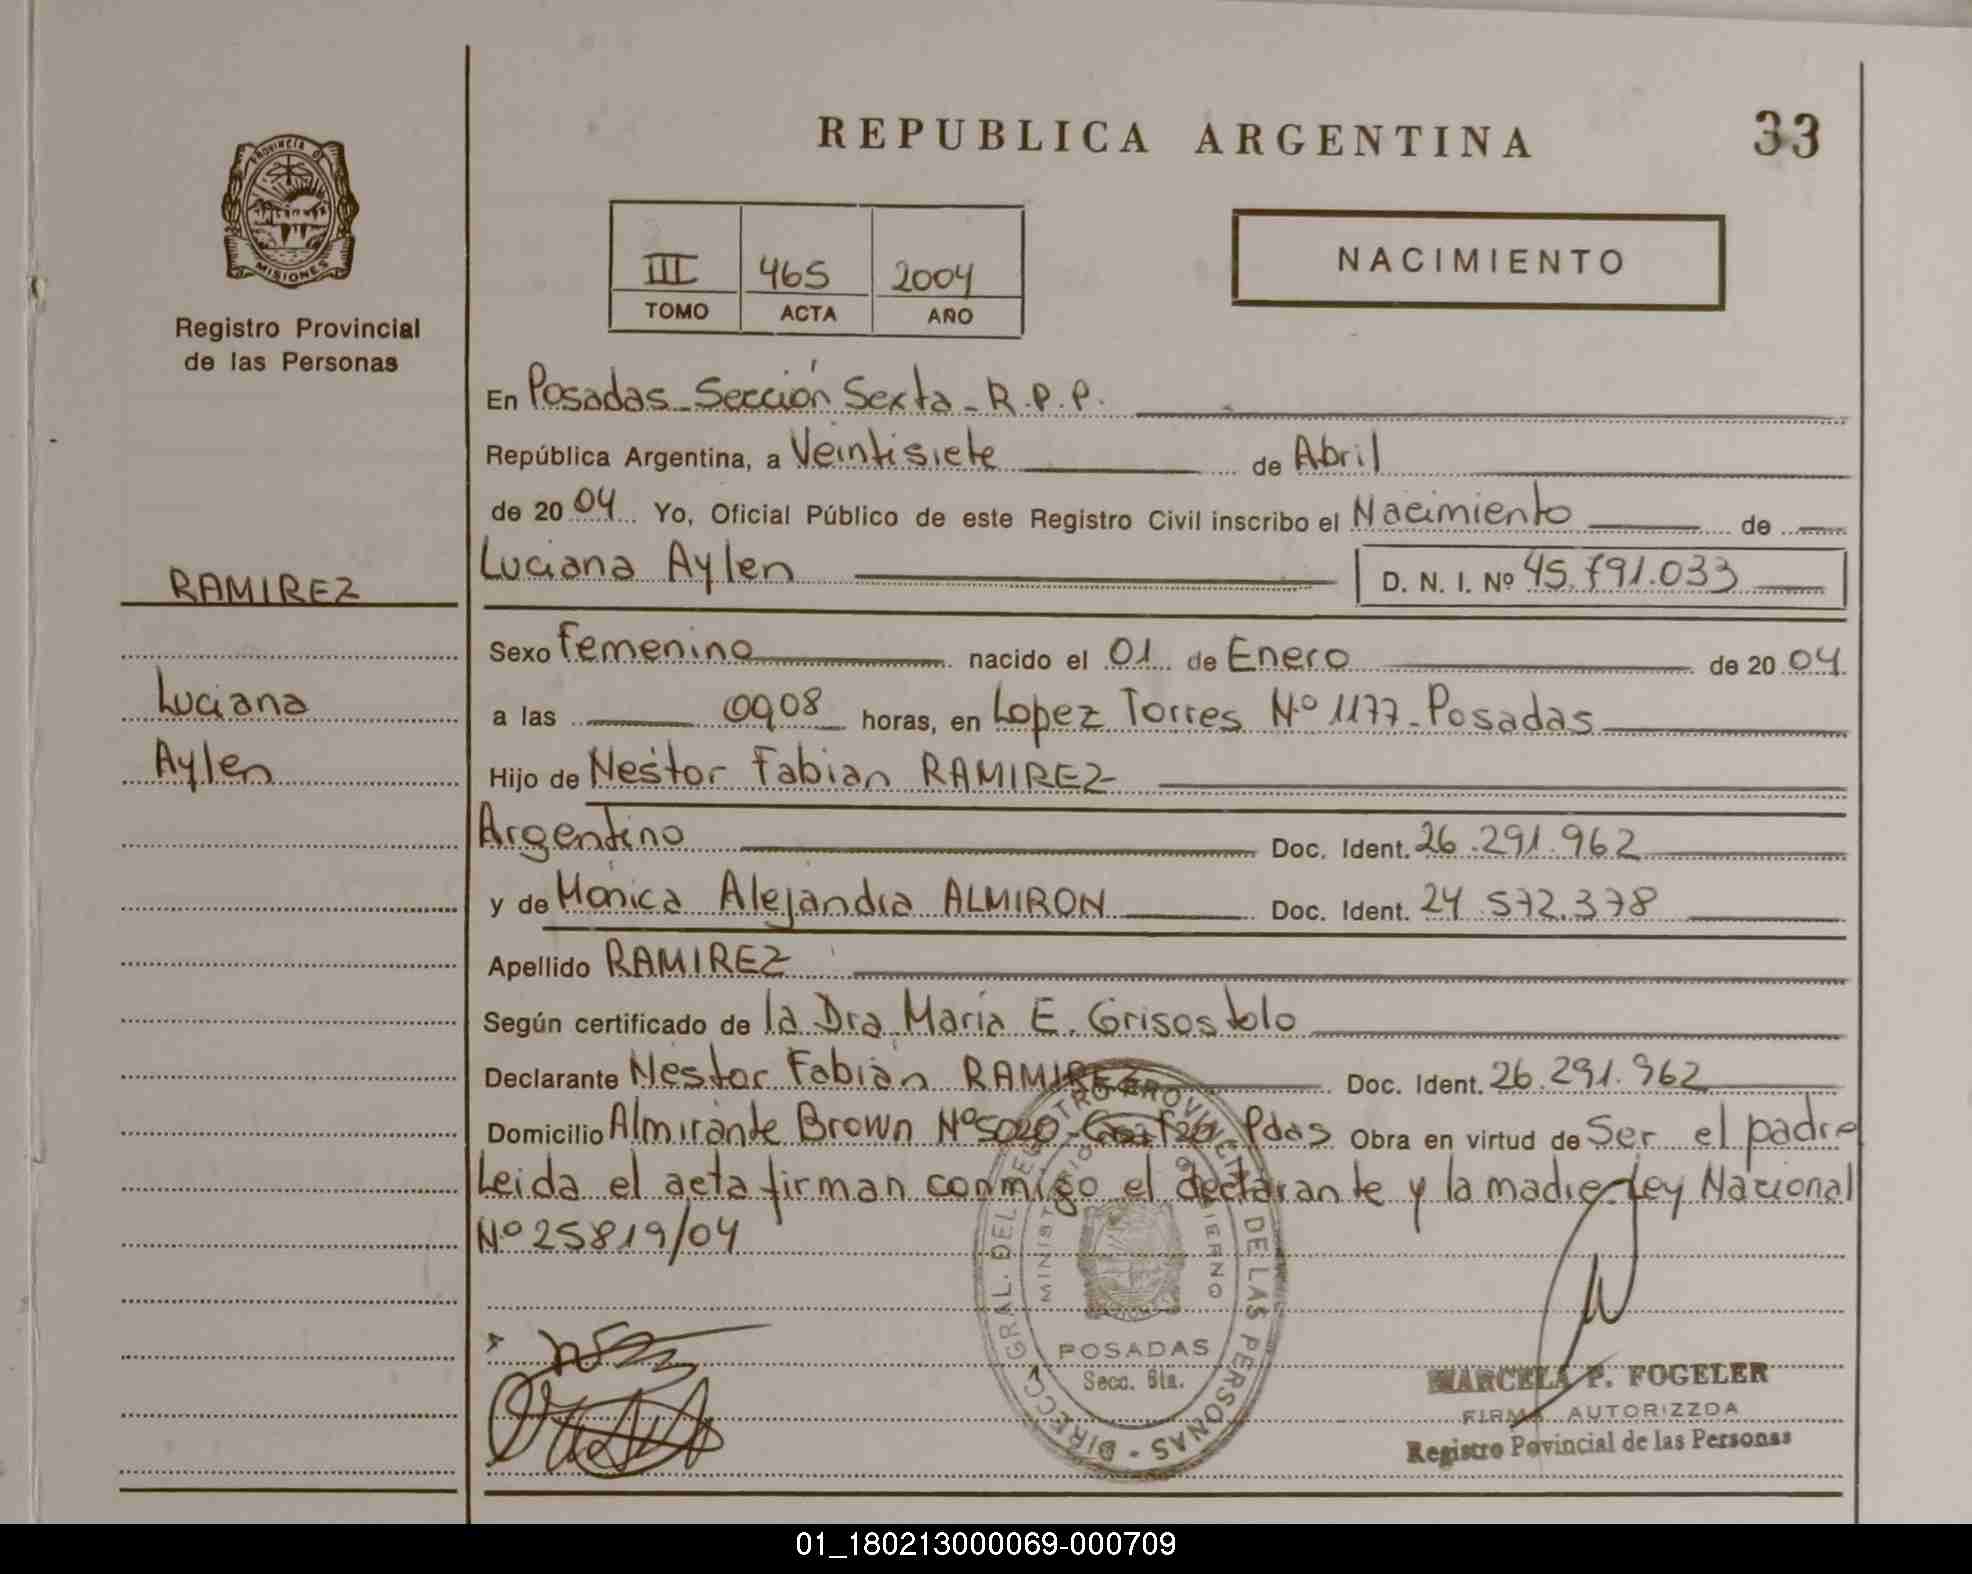 REPUBLICA ARGENTINA
33
PROVINCIA DE
MISIONES
Registro Provincial
de las Personas
III 465 2004
TOMO ACTA AÑO
NACIMIENTO
En Posadas - Sección Sexta - R.P.P.
República Argentina, a Veintisiete de Abril
de 2004 Yo, Oficial Público de este Registro Civil inscribo el Nacimiento de
Luciana Aylen D. N. I. Nº 45.791.033
RAMIREZ
Luciana
Aylen
Sexo Femenino nacido el 01 de Enero de 2004
a las 0908 horas, en Lopez Torres Nº 1177 - Posadas
Hijo de Néstor Fabian RAMIREZ
Argentino Doc. Ident. 26.291.962
y de Mónica Alejandra ALMIRON Doc. Ident. 24.572.378
Apellido RAMIREZ
Según certificado de la Dra María E. Grisostolo
Declarante Néstor Fabián RAMIREZ Doc. Ident. 26.291.962
Domicilio Almirante Brown Nº 5020 - Pdas Obra en virtud de Ser el padre
Leida el acta firman conmigo el declarante y la madre - Ley Nacional
Nº 25819/04
DIRECC. GRAL. DEL REGISTRO PROVINCIAL DE LAS PERSONAS -
MINISTERIO GOBIERNO
POSADAS
Secc. 6ta.
MARCELA P. FOGELER
FIRMA AUTORIZZDA
Registro Povincial de las Personas
01_180213000069-000709